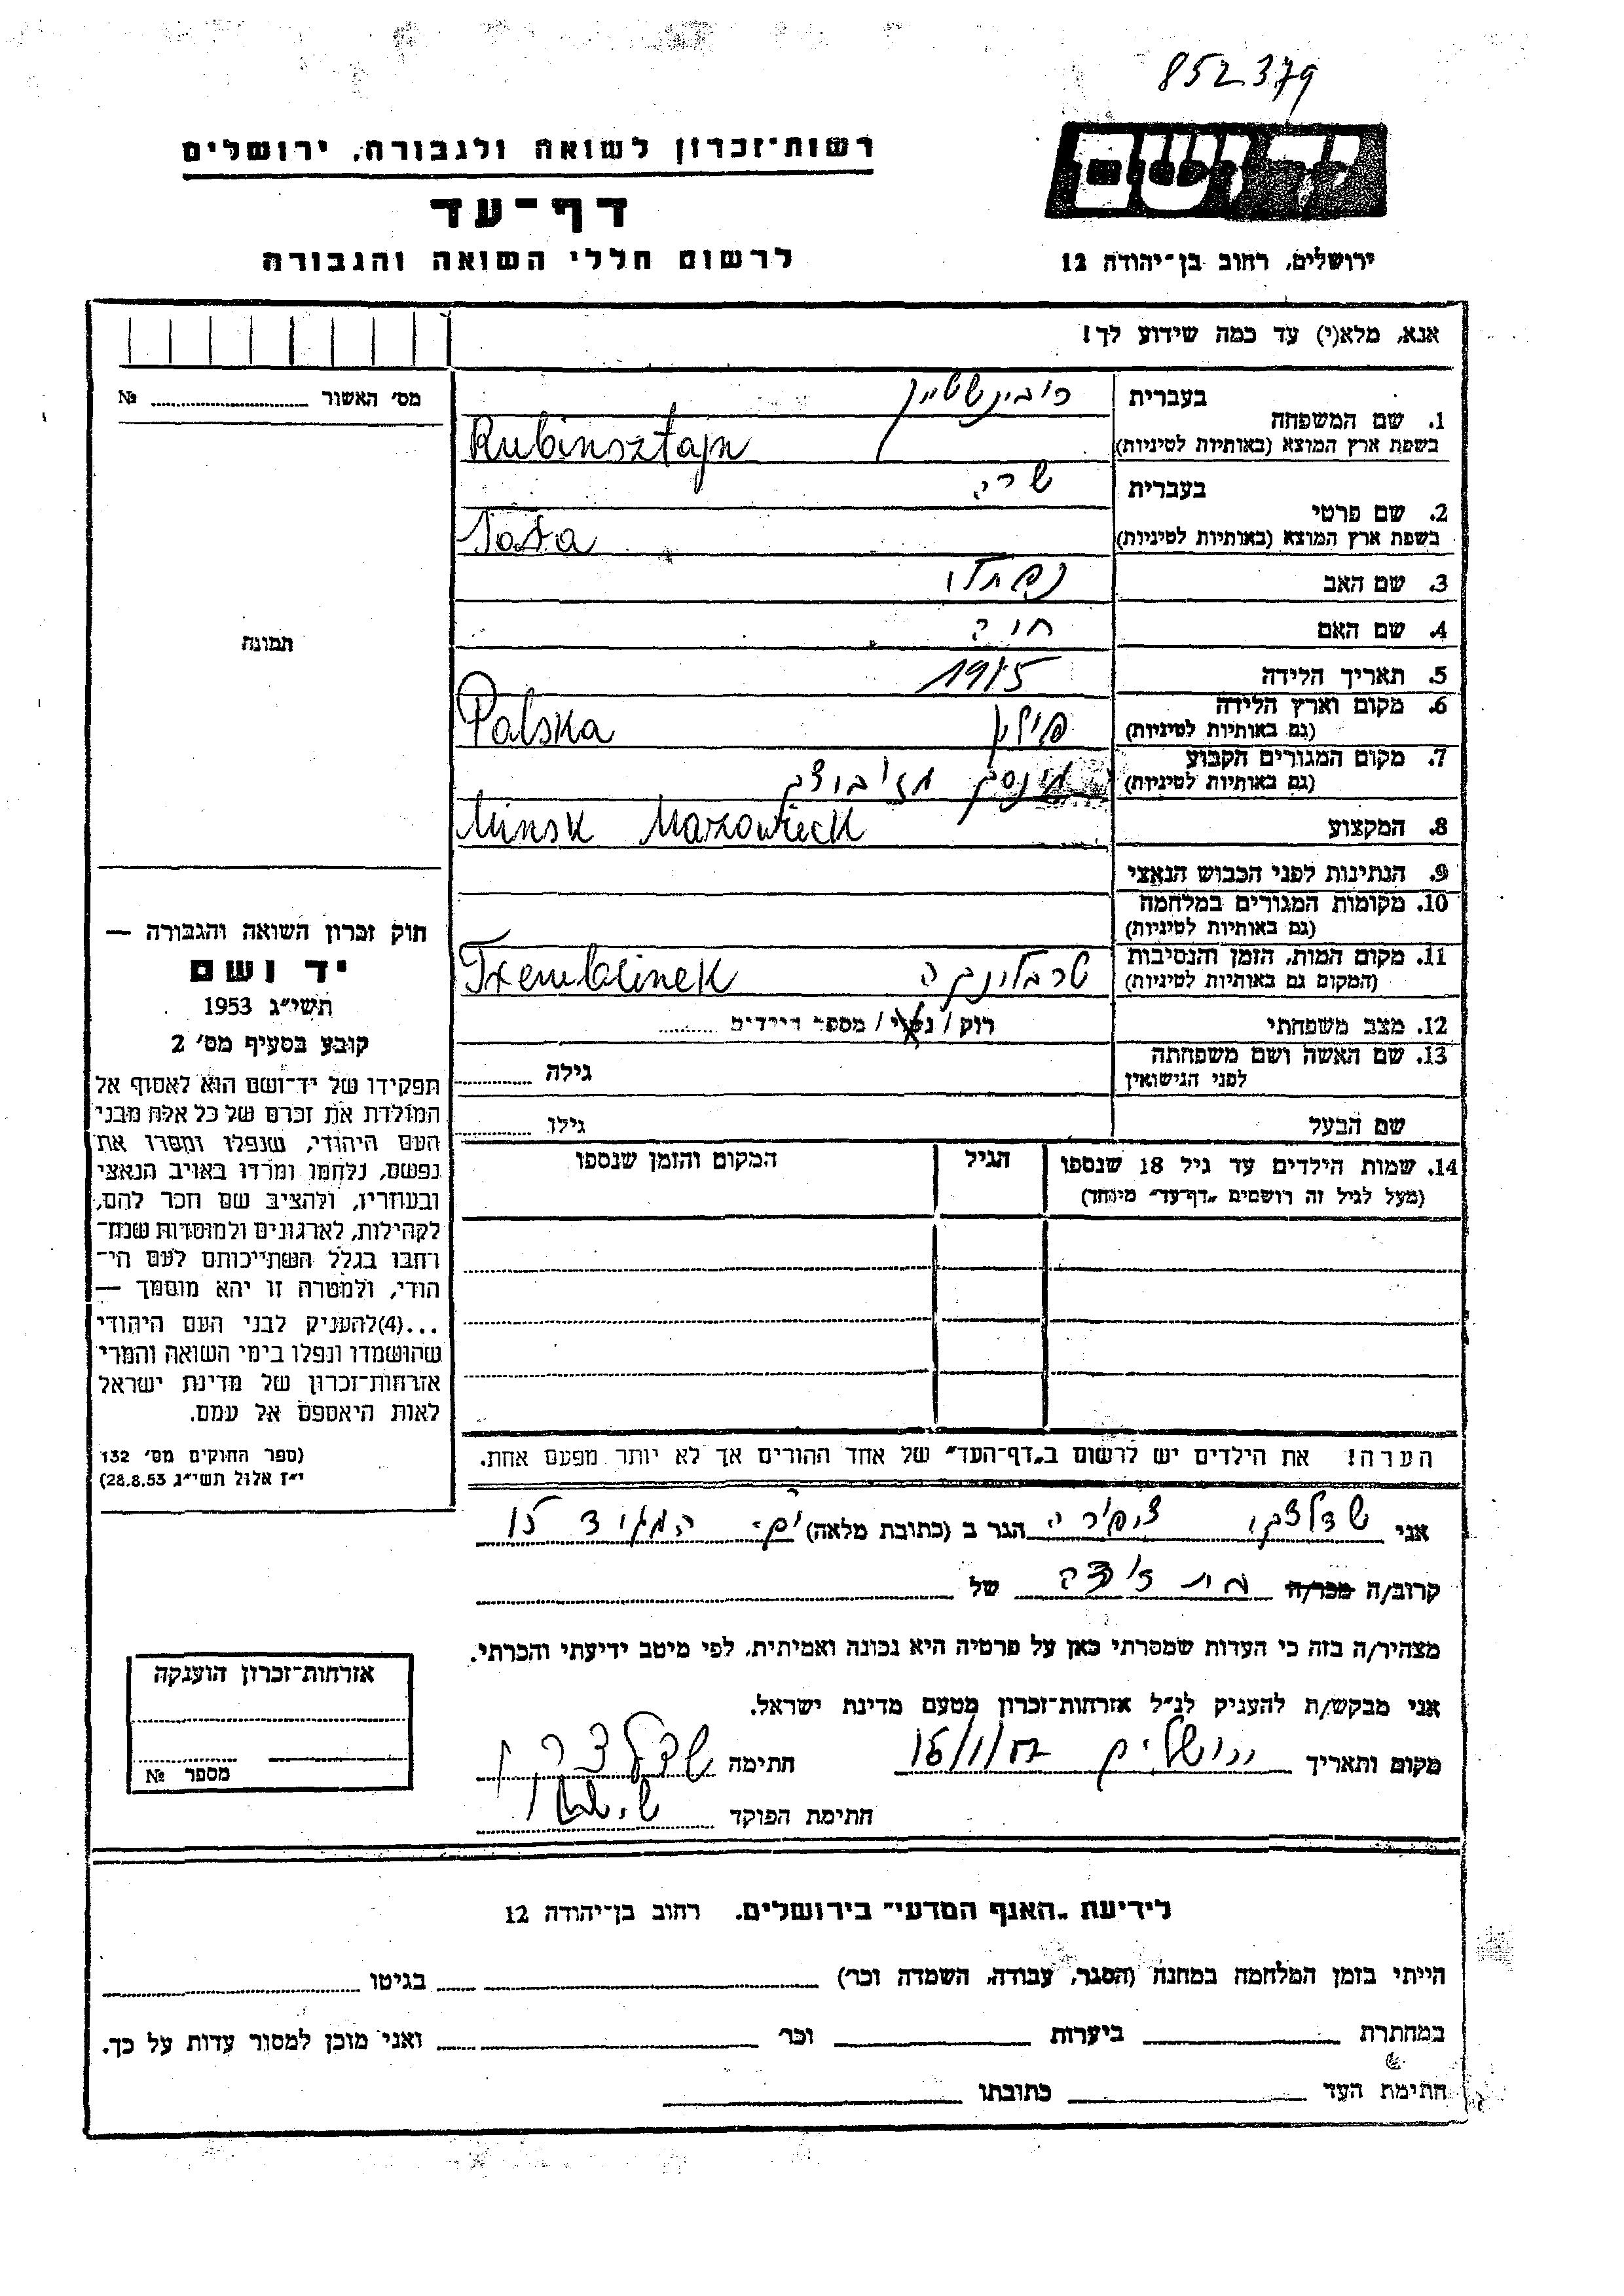 852379
יד ושם
רשות־זכרון לשואה ולגבורה, ירושלים
דף־עד
לרשום חללי השואה והגבורה
ירושלים, רחוב בן־יהודה 12
אנא, מלא(י) עד כמה שידוע לך!
מס׳ האשור № 
1. שם המשפחה
בעברית רובינשטיין
בשפת ארץ המוצא (באותיות לטיניות) Rubinsztajn
2. שם פרטי
בעברית שרה
בשפת ארץ המוצא (באותיות לטיניות)
3. שם האב נפתלי
4. שם האם חוה
5. תאריך הלידה 1915
6. מקום וארץ הלידה
(גם באותיות לטיניות) פולין Polska
7. מקום המגורים הקבוע
(גם באותיות לטיניות) מינסק
Minsk Mazowieck
8. המקצוע
9. הנתינות לפני הכבוש הנאצי
10. מקומות המגורים במלחמה
(גם באותיות לטיניות)
11. מקום המות, הזמן והנסיבות
(המקום גם באותיות לטיניות) טרבלינקה Tremblinek
12. מצב משפחתי רוק / נשוי / מספר הילדים
13. שם האשה ושם משפחתה
לפני הנישואין גילה
שם הבעל גילו
14. שמות הילדים עד גיל 18 שנספו
(מעל לגיל זה רושמים „דף־עד״ מיוחד)
הגיל
המקום והזמן שנספו
הערה! את הילדים יש לרשום ב„דף־העד״ של אחד ההורים אך לא יותר מפעם אחת.
תמונה
חוק זכרון השואה והגבורה —
יד ושם
תשי״ג 1953
קובע בסעיף מס׳ 2
תפקידו של יד־ושם הוא לאסוף אל
המולדת את זכרם של כל אלה מבני
העם היהודי, שנפלו ומסרו את
נפשם, נלחמו ומרדו באויב הנאצי
ובעוזריו, ולהציב שם וזכר להם,
לקהילות, לארגונים ולמוסדות שנח־
רבו בגלל השתייכותם לעם הי־
הודי, ולמטרה זו יהא מוסמך —
...(4)להעניק לבני העם היהודי
שהושמדו ונפלו בימי השואה והמרי
אזרחות־זכרון של מדינת ישראל
לאות היאספם אל עמם.
(ספר החוקים מס׳ 132
י״ז אלול תשי״ג 28.8.53)
אני ציפורה הגר ב (כתובת מלאה) המגיד 15
קרוב/ה מכר/ה בת דודה של
מצהיר/ה בזה כי העדות שמסרתי כאן על פרטיה היא נכונה ואמיתית, לפי מיטב ידיעתי והכרתי.
אני מבקש/ת להעניק לנ״ל אזרחות־זכרון מטעם מדינת ישראל.
מקום ותאריך ירושלים חתימה
חתימת הפוקד
אזרחות־זכרון הוענקה
מספר №
לידיעת „האגף המדעי״ בירושלים, רחוב בן־יהודה 12
הייתי בזמן המלחמה במחנה (הסגר, עבודה, השמדה וכר׳) בגיטו
במחתרת ביערות וכר׳ ואני מוכן למסור עדות על כך.
חתימת העד כתובתו